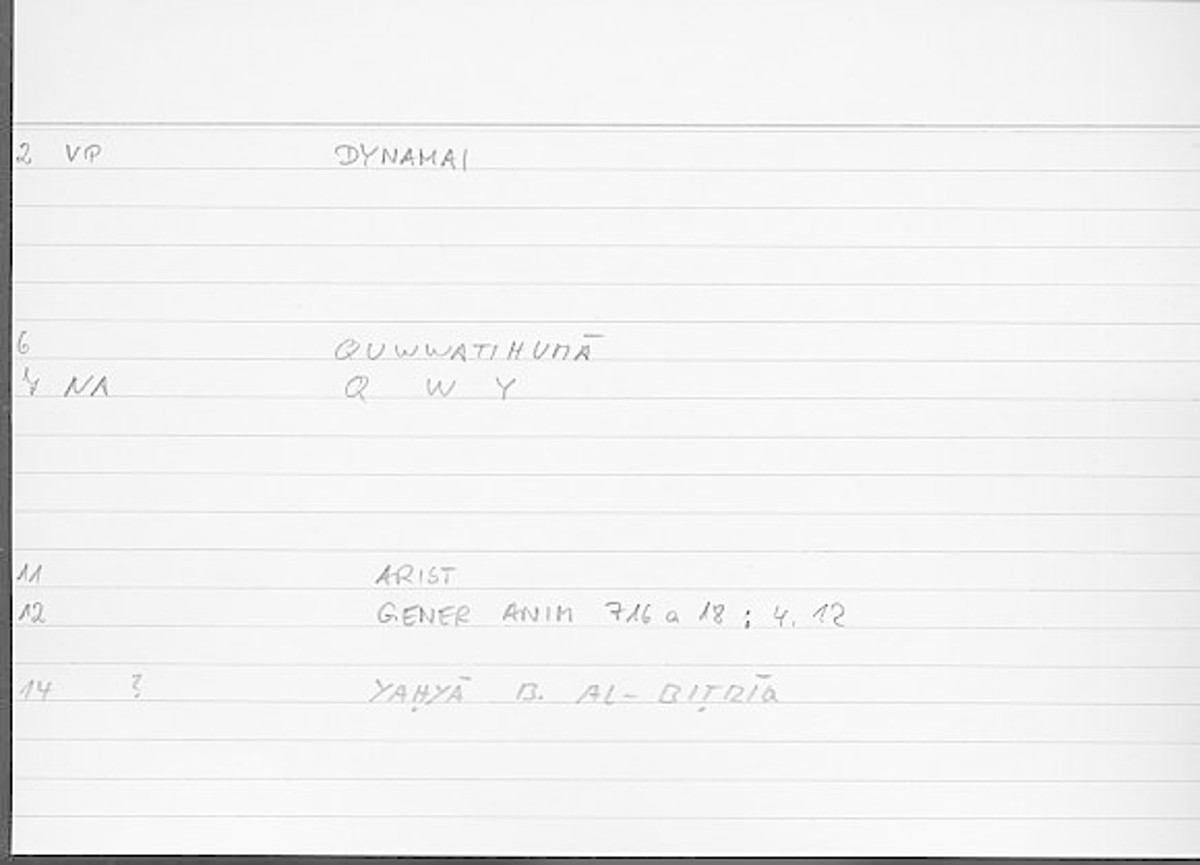 2 VP DYNAMAI
6 QUWWATIHUMĀ
7 NA Q W Y
11 ARIST
12 GENER ANIM 716 a 18 ; 4. 12
14 ? YAḤYĀ B. AL-BIṬRĪQ